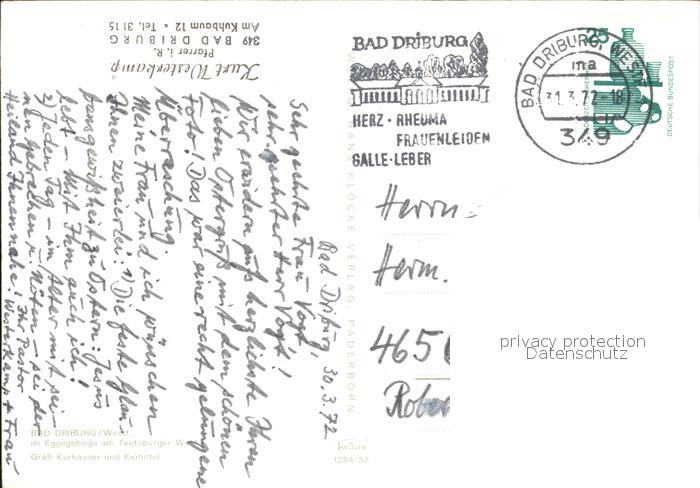 Kurt Westerkamp
Pfarrer i. R.
349 BAD DRIBURG
Am Kuhbaum 12 • Tel. 31 15
Bad Driburg, 30.3.72
Sehr geehrte Frau Vogt,
sehr geehrter Herr Vogt!
Wir erwidern aufs herzlichste Ihren
lieben Ostergruß mit dem schönen
Foto! Das war eine recht gelungene
Überraschung.
Meine Frau und ich wünschen
Ihnen zweierlei: 1) Die feste Glau-
bensgewißheit zu Ostern: Jesus
lebt – mit Ihm auch ich!
2) Jeden Tag – im Alter mit sei-
nen Gebrechen u. Nöten – sei der
Heiland Ihnen nahe! Ihr Pastor
Westerkamp + Frau
BAD DRIBURG/Westf.
im Eggegebirge am Teutoburger W
Gräfl. Kurhäuser und Kurhotel
KLOCKE VERLAG, PADERBORN
1284/37
BAD DRIBURG
HERZ • RHEUMA
FRAUENLEIDEN
GALLE • LEBER
BAD DRIBURG, WESTF
ma
31.3.72-18
349
25
DEUTSCHE BUNDESPOST
Herrn
Herm.
465
Rober
privacy protection
Datenschutz